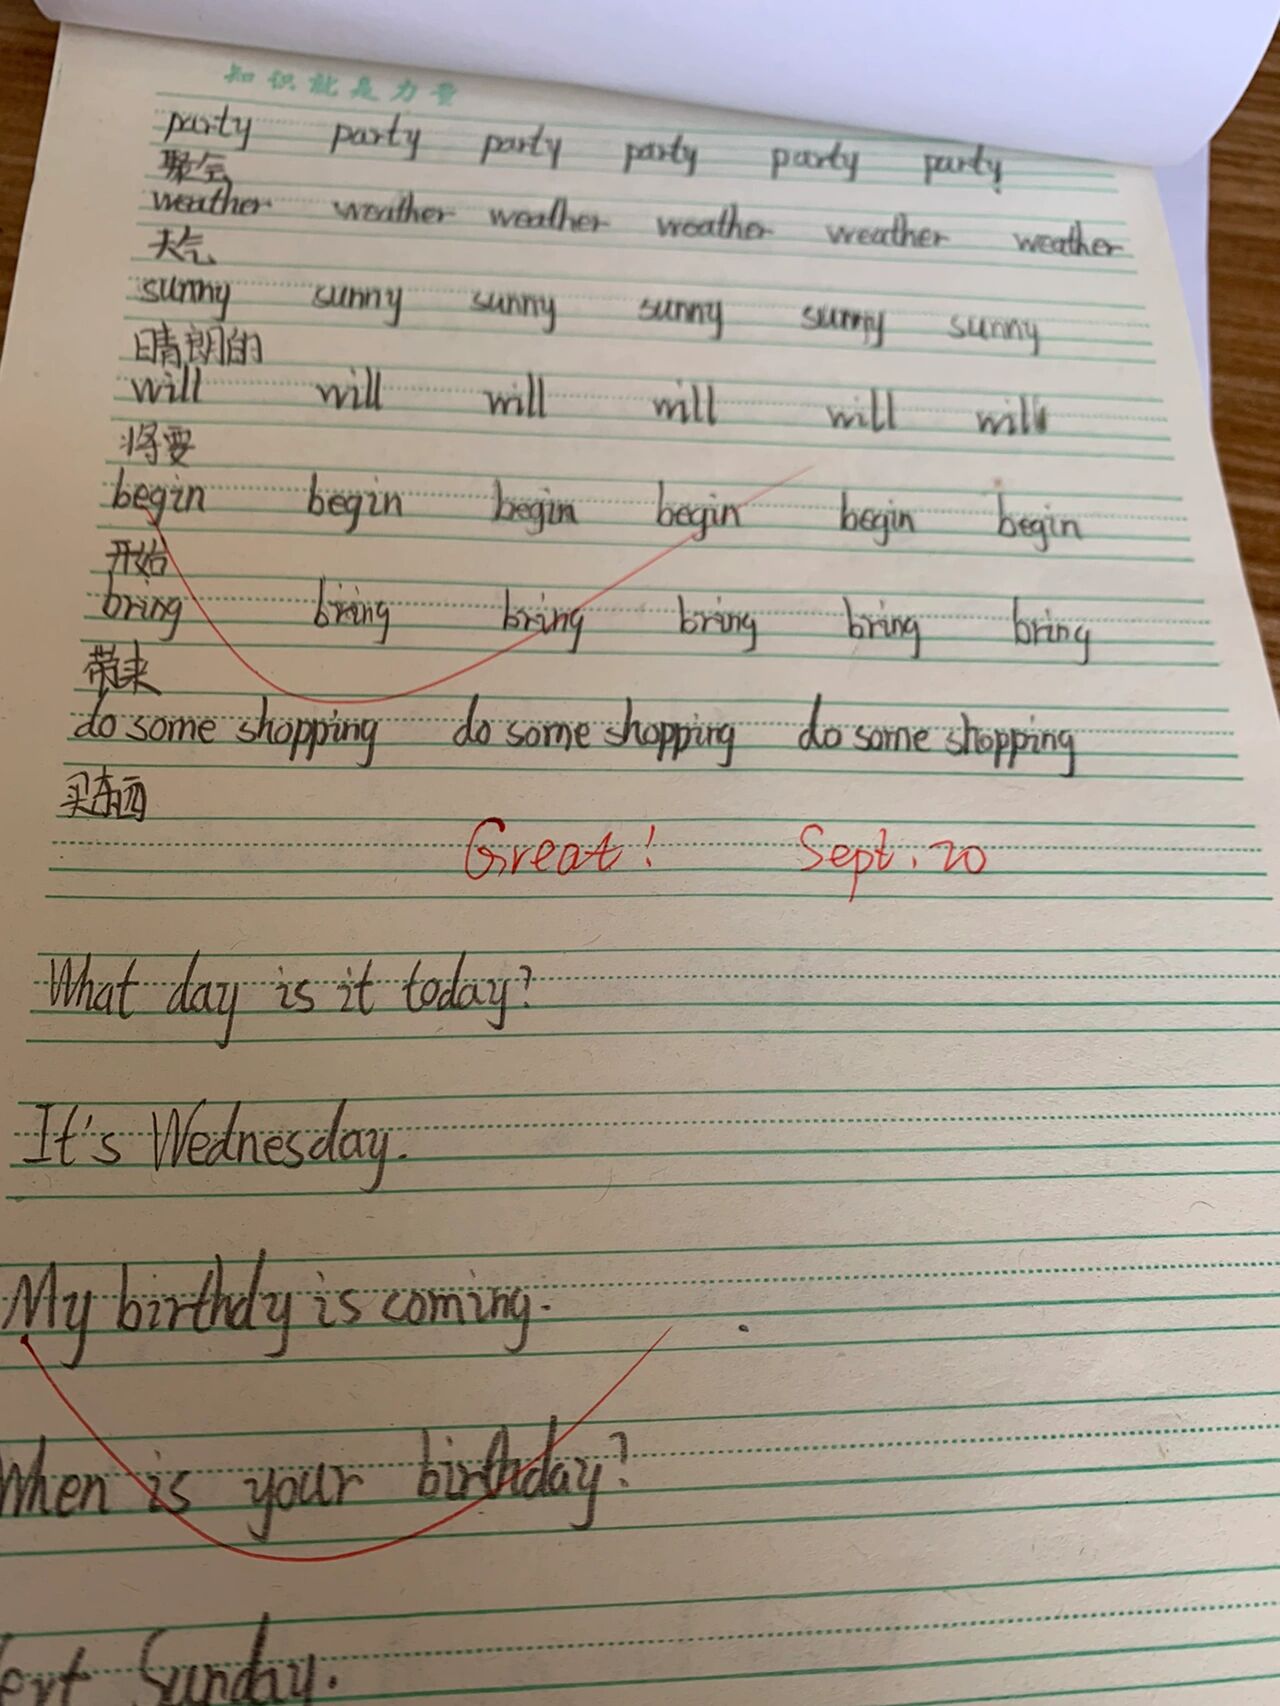 知识就是力量
party party party party party party
聚会
weather weather weather weather weather weather
天气
sunny sunny sunny sunny sunny sunny
晴朗的
will will will will will will
将要
begin begin begin begin begin begin
开始
bring bring bring bring bring bring
带来
do some shopping do some shopping do some shopping
买东西
Great! Sept. 20
What day is it today?
It's Wednesday.
My birthdy is coming.
When is your birthday?
Sunday.